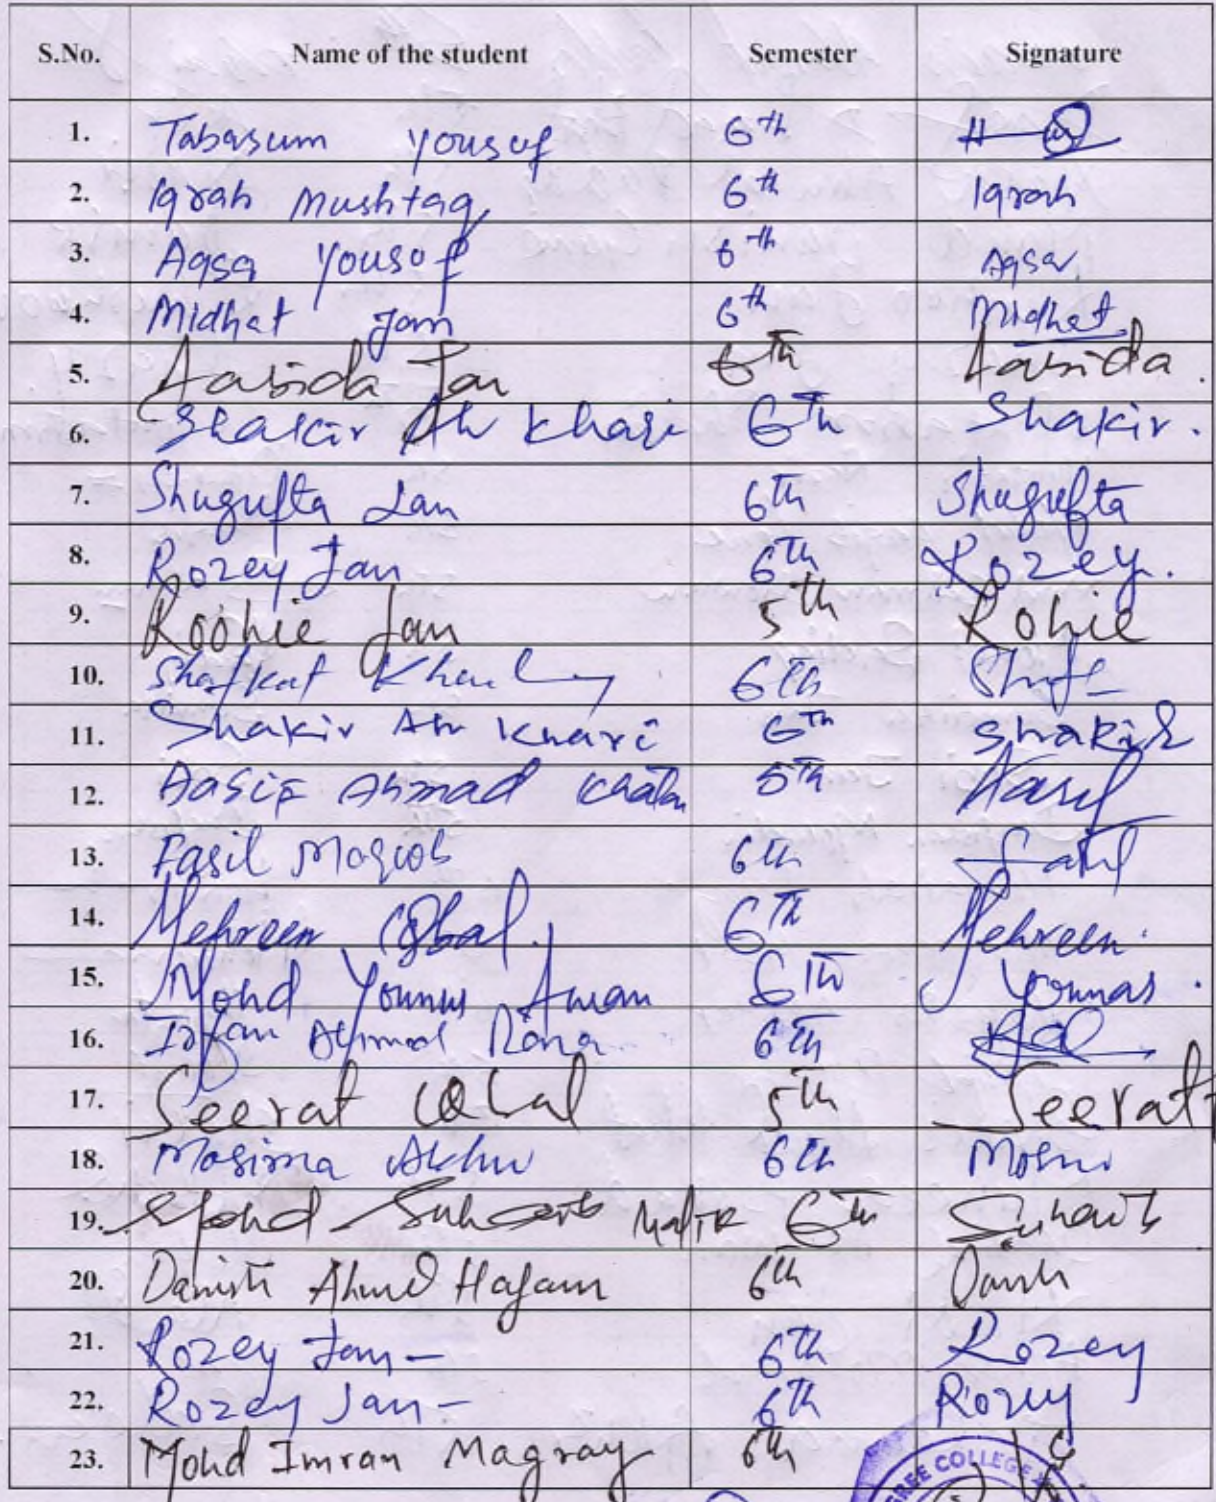 S.No. Name of the student Semester Signature
1. Tabasum Yousuf 6th
2. Iqrah Mushtaq 6th Iqrah
3. Aqsa Yousof 6th Aqsa
4. Midhat Jan 6th Midhat
5. Aabida Jan 6th Aabida.
6. Shakir Ah Khari 6th Shakir.
7. Shugufta Jan 6th Shugufta
8. Rozey Jan 6th Rozey.
9. Roohie Jan 5th Rohie
10. Shafkat 6th
11. Shakir Ah Khari 6th Shakir
12. Aasif Ahmad 5th Aasif
13. Fasil 6th
14. Mehreen Iqbal. 6th Mehreen.
15. Mohd Younus 6th Younas.
16. Irfan Ahmad 6th
17. Seerat Iqbal 5th Seerat
18. 6th
19. Mohd Suhaib Malik 6th Suhaib
20. Danish Ahmd Hajam 6th Danish
21. Rozey Jan- 6th Rozey
22. Rozey Jan- 6th Rozey
23. Mohd Imran Magray 6th
REE COLLEGE